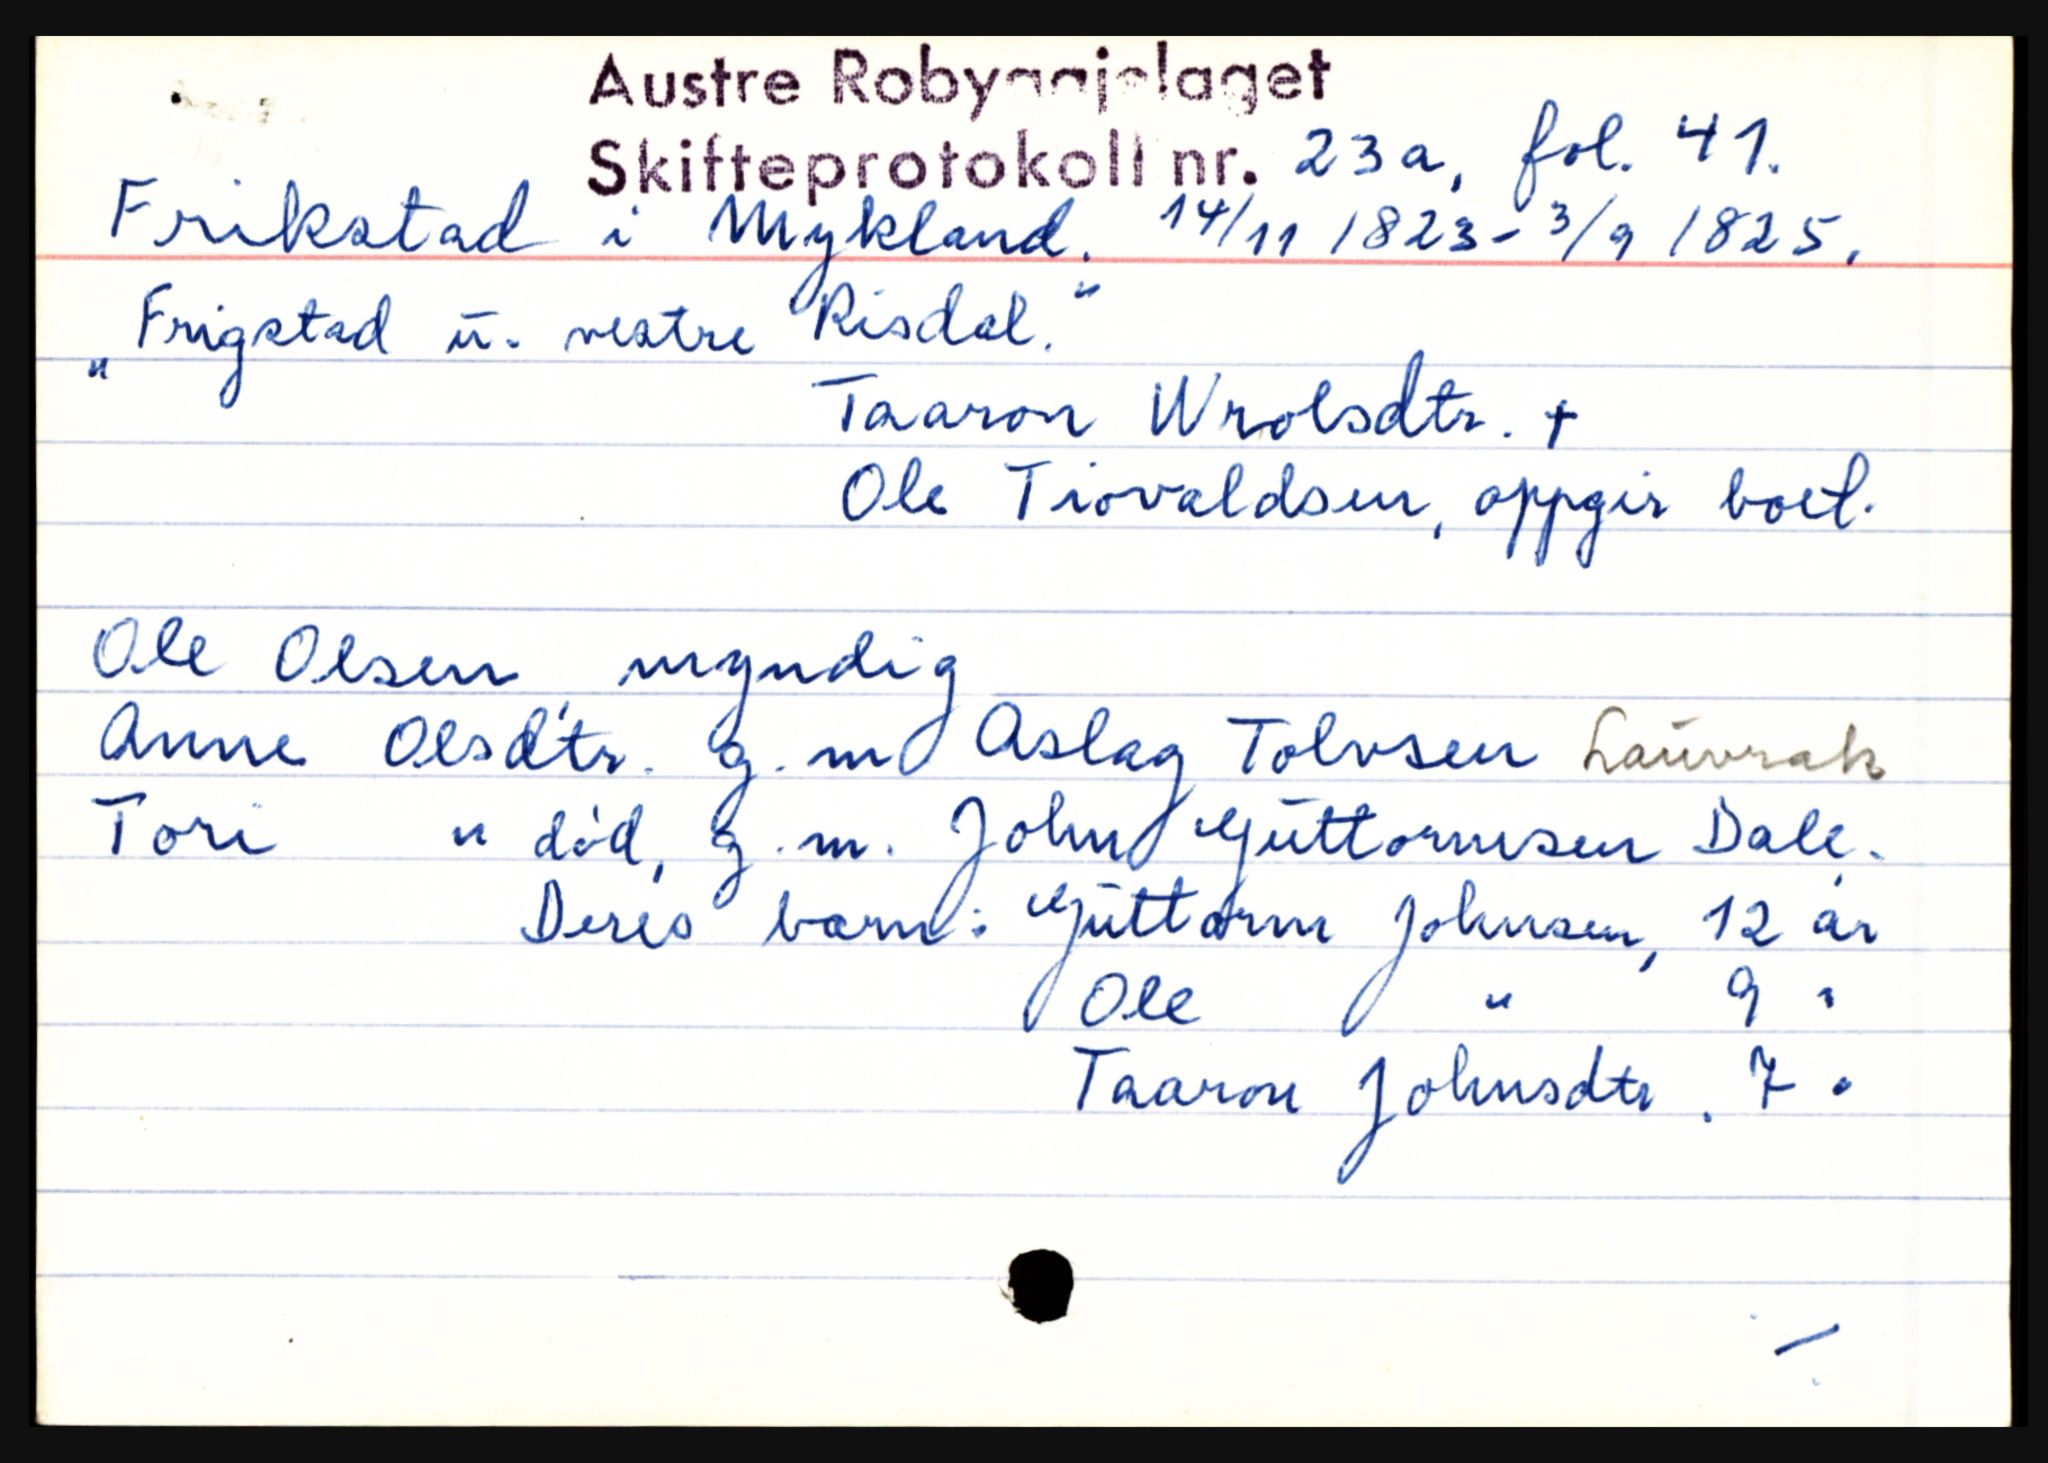 Austre Robyggjelaget
Skifteprotokoll nr. 23a, fol. 41.
Frikstad i Mykland. 14/11 1823 - 3/9 1825.
"Frigstad u. vestre Risdal."
Taaron Wrolsdtr. +
Ole Tiovaldsen, oppgir boet.
Ole Olsen, myndig
Anne Olsdtr. g.m. Aslag Tolvsen Lauvrak
Tori " død, g.m. John Guttormsen Dale.
Deres barn: Guttorm Johnsen, 12 år
Ole " 9 "
Taaron Johnsdtr. 7 "